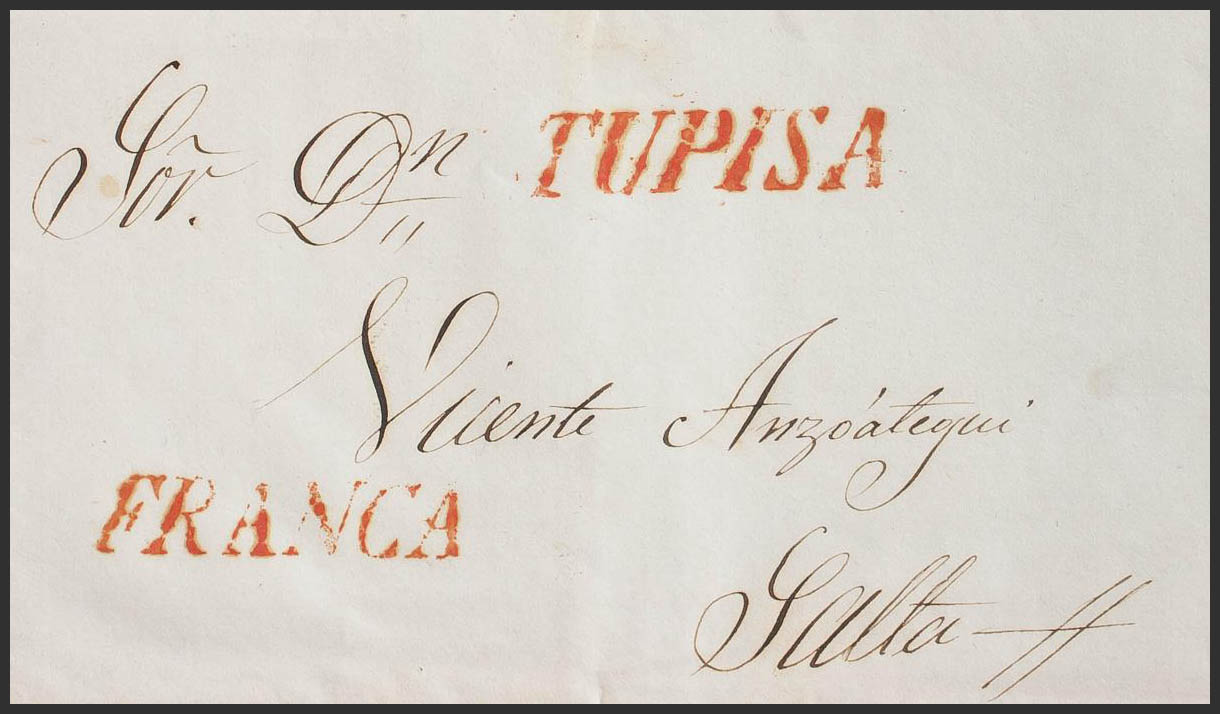 Sõr. Dn TUPISA
Vicente Anzoátegui
FRANCA
Salta